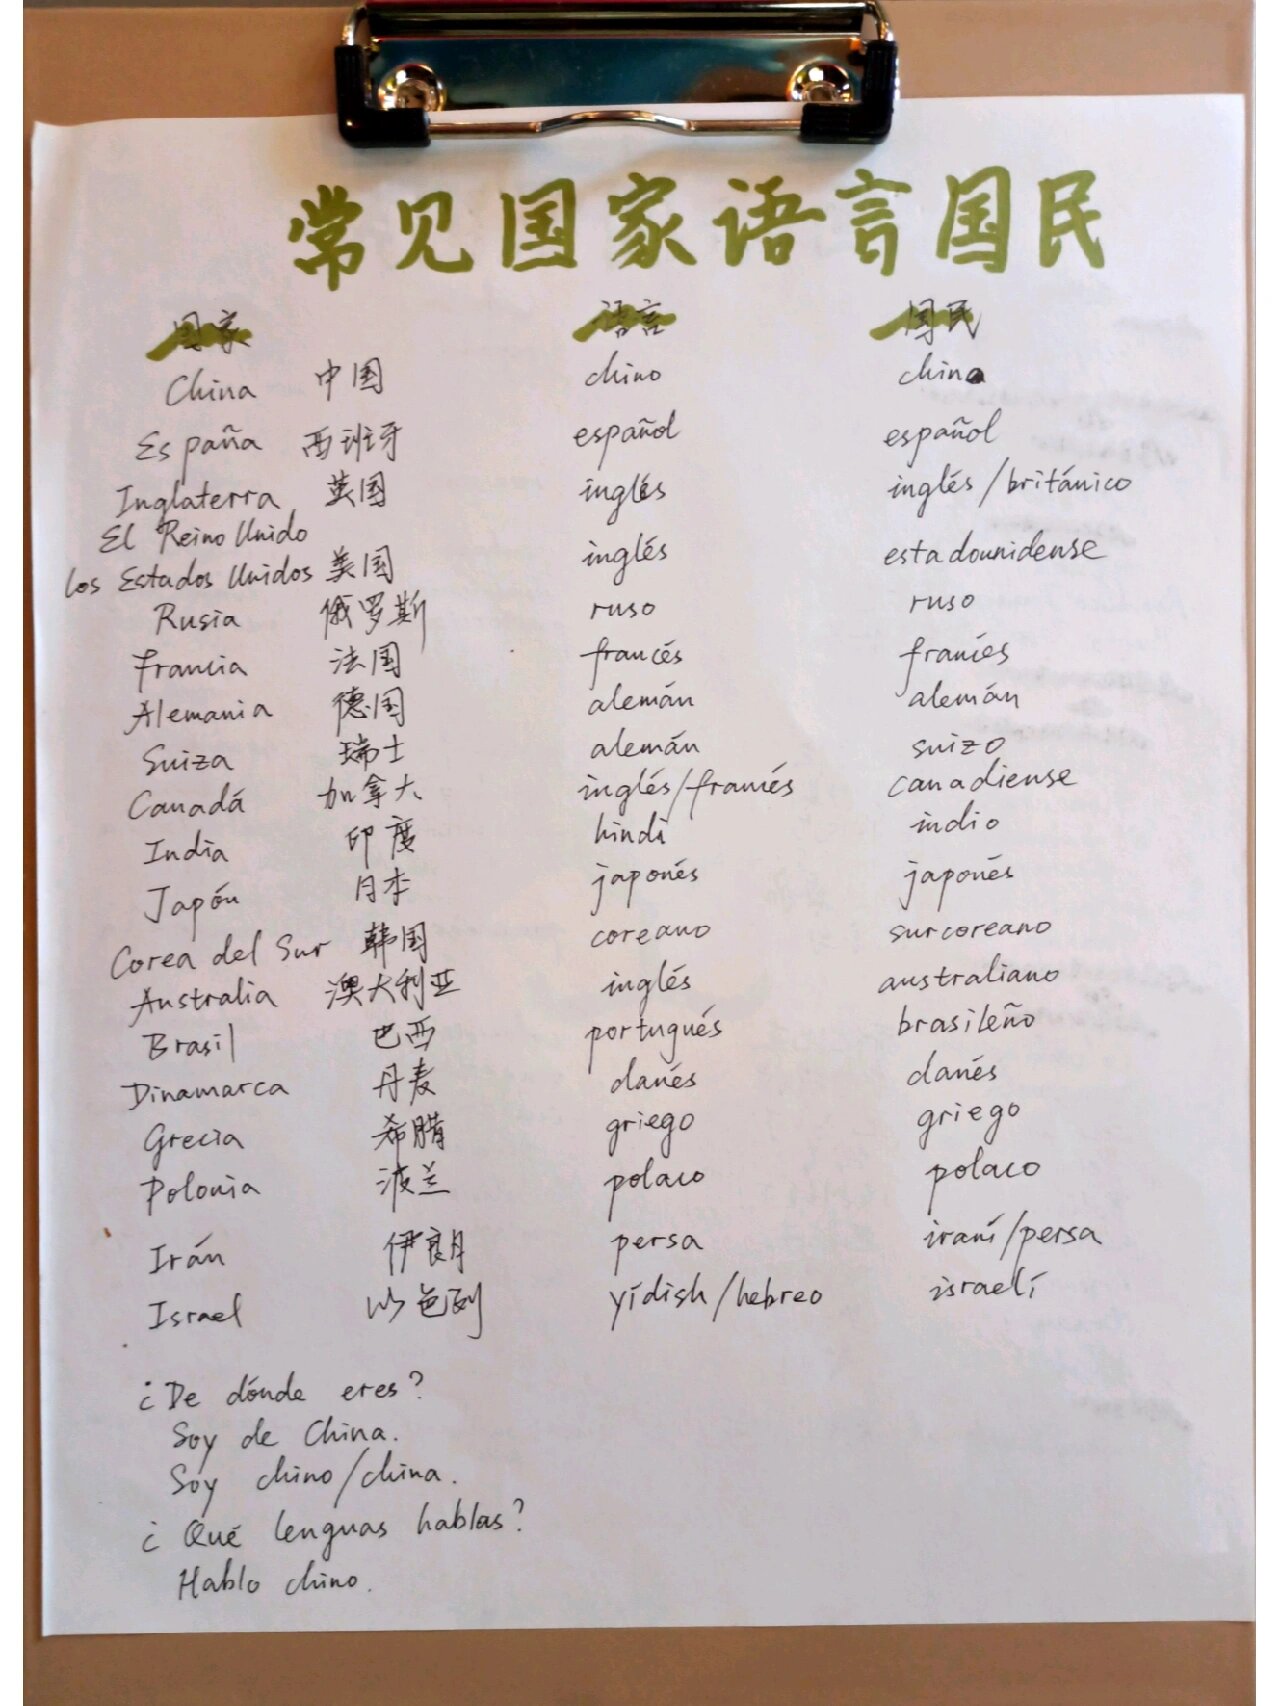 常见国家语言国民
国家 语言 国民
China 中国 chino china
España 西班牙 español español
Inglaterra 英国 inglés inglés/británico
El Reino Unido
los Estados Unidos 美国 inglés estadounidense
Rusia 俄罗斯 ruso ruso
Francia 法国 francés francés
Alemania 德国 alemán alemán
Suiza 瑞士 alemán suizo
Canadá 加拿大 inglés/francés canadiense
India 印度 hindi indio
Japón 日本 japonés japonés
Corea del Sur 韩国 coreano surcoreano
Australia 澳大利亚 inglés australiano
Brasil 巴西 portugués brasileño
Dinamarca 丹麦 danés danés
Grecia 希腊 griego griego
Polonia 波兰 polaco polaco
Irán 伊朗 persa iraní/persa
Israel 以色列 yídish/hebreo israelí
¿De dónde eres?
Soy de China.
Soy chino/china.
¿Qué lenguas hablas?
Hablo chino.